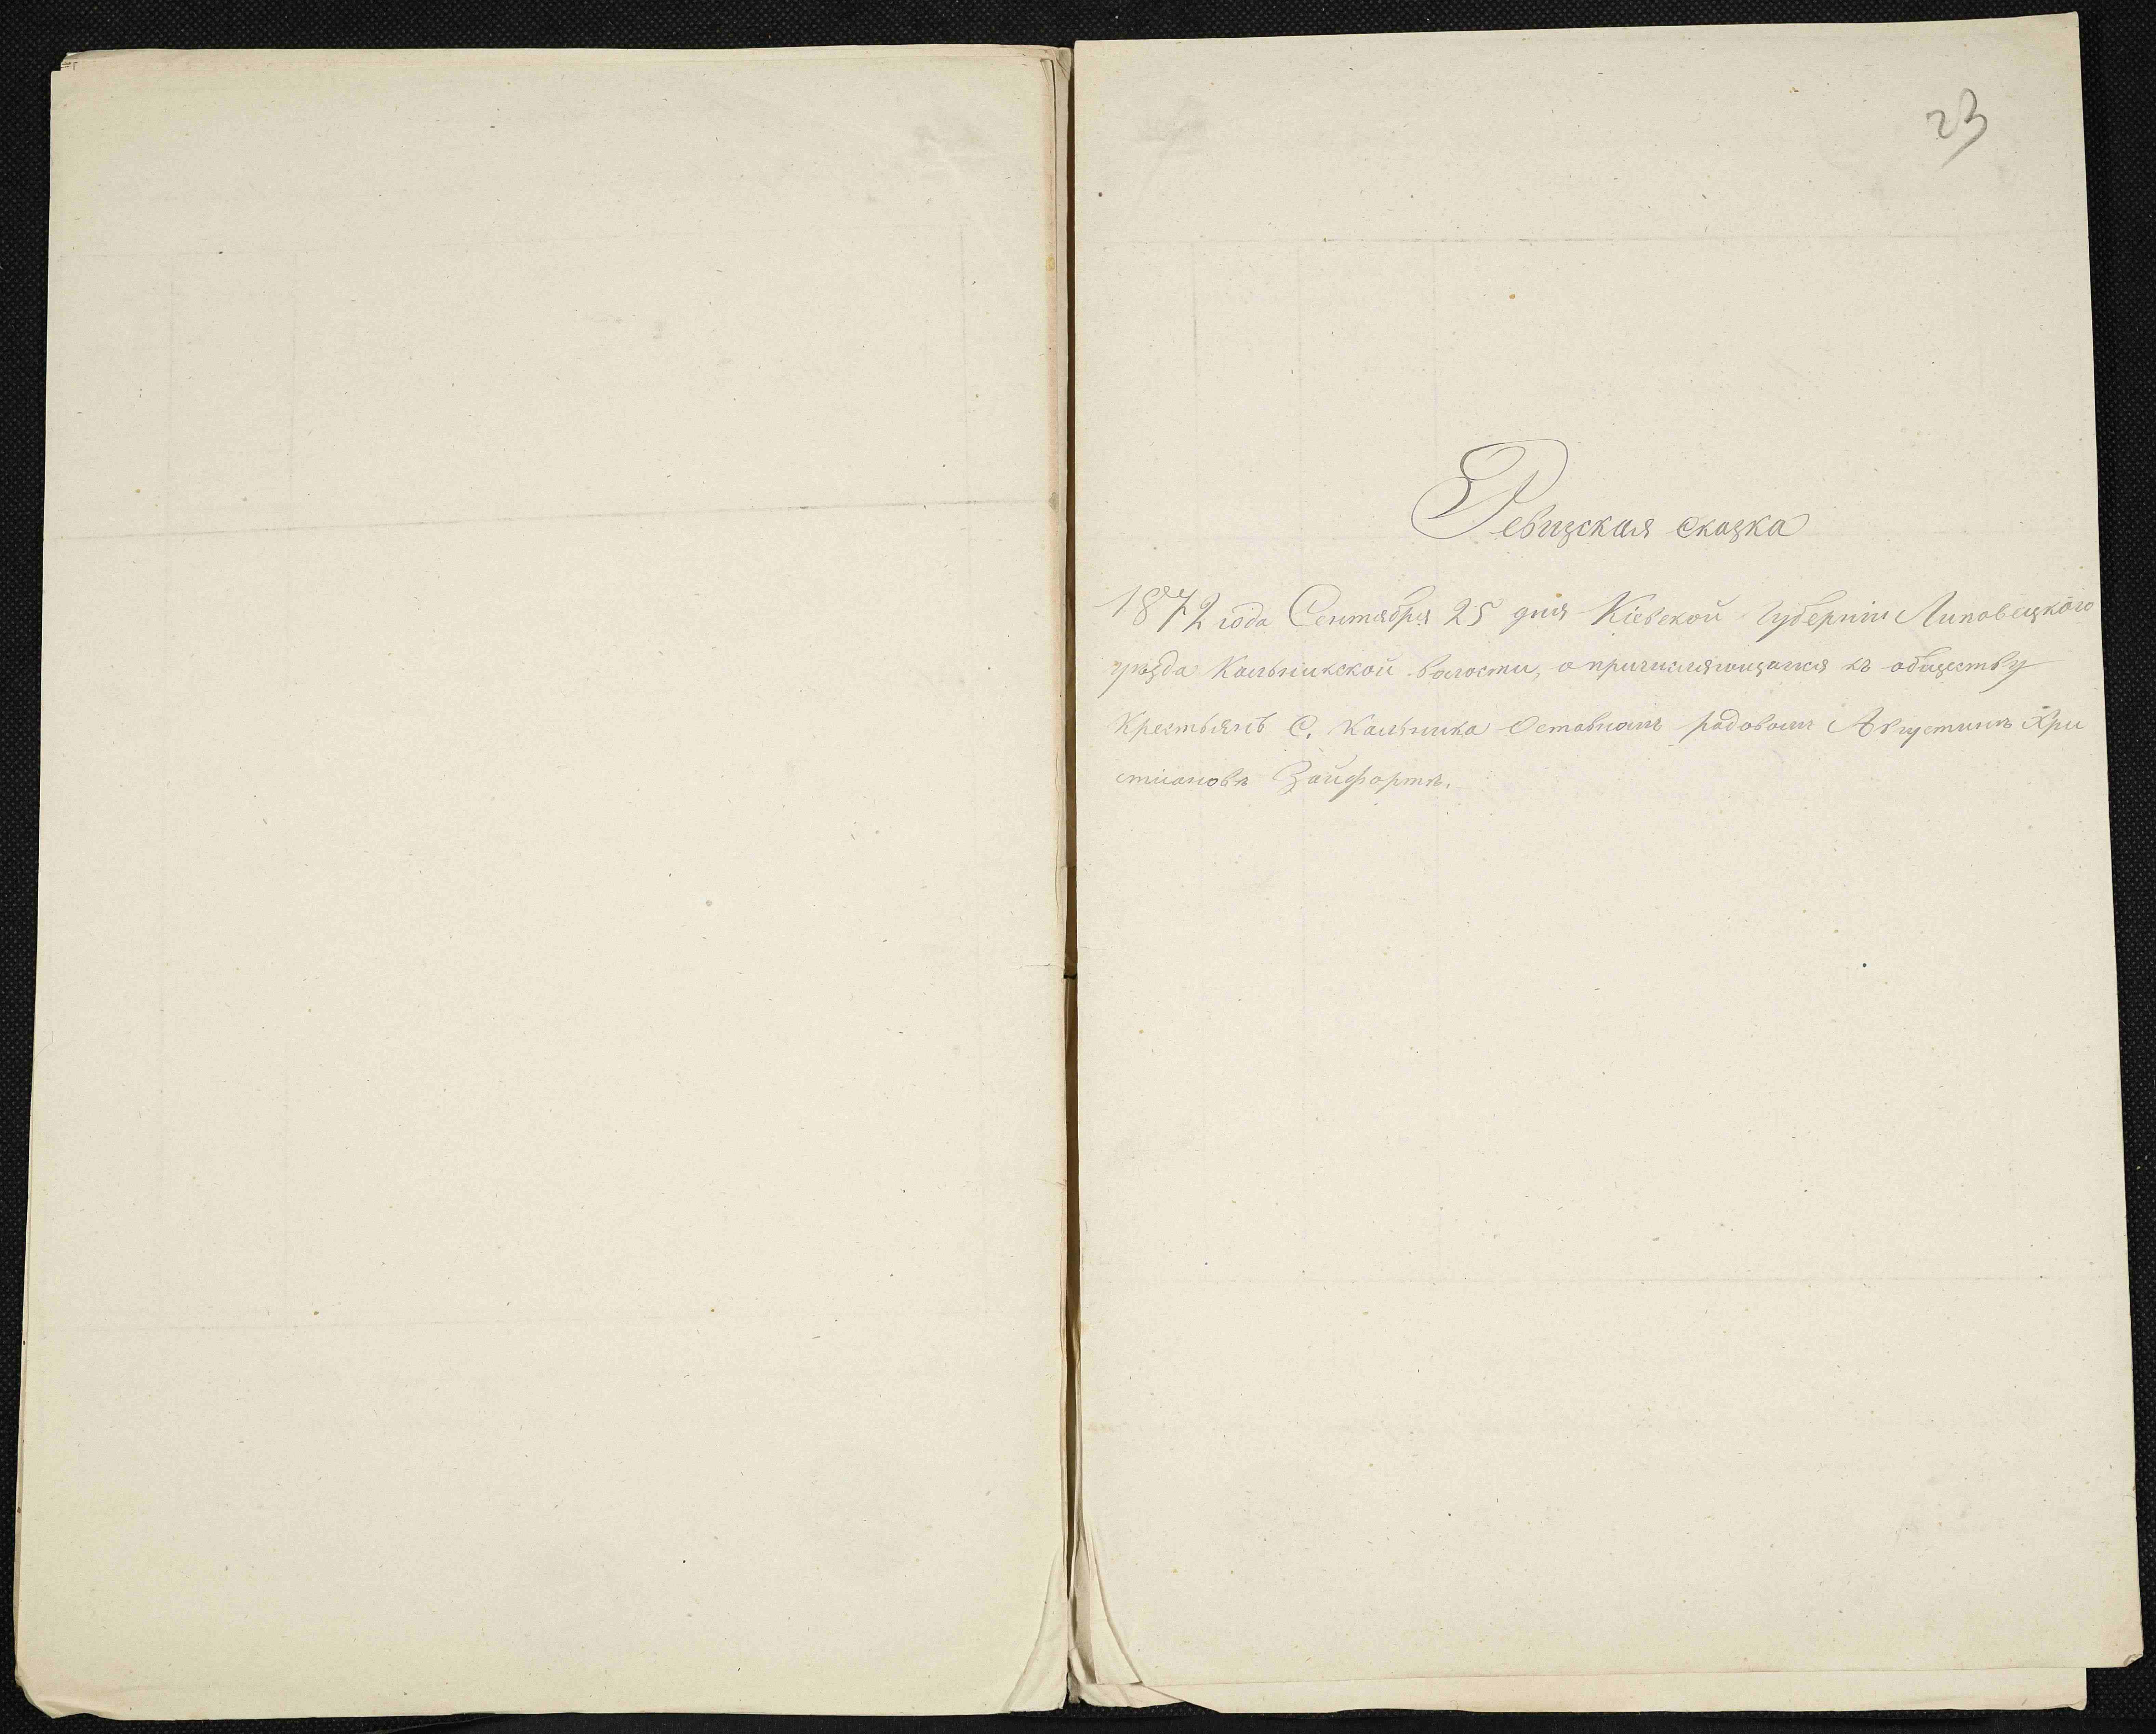 23
Ревизская сказка
1872 года Сентября 25 дня Кіевской Губерніи Липовецкого
уѣзда Кальникской волости, о причисляющемся къ обществу
Крестьянъ С. Кальника Отставномъ рядовомъ Августинъ Хри
стіановъ Зайфортъ.